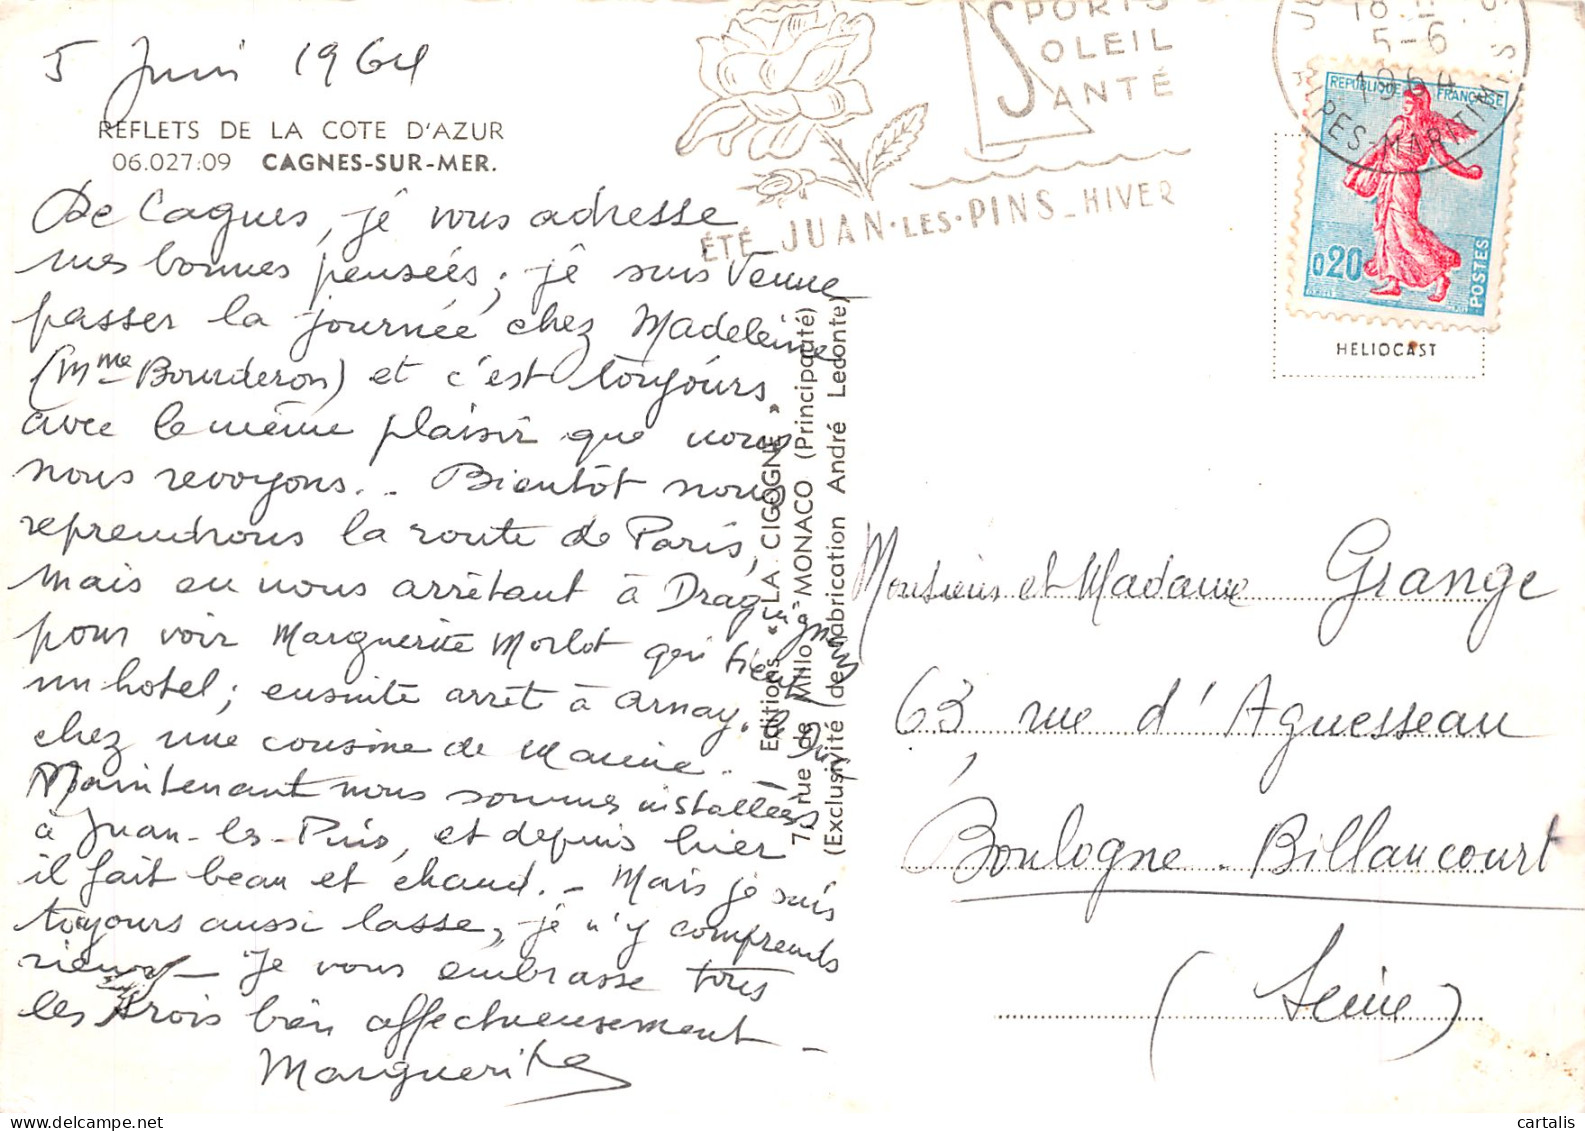 5 Juin 1964
REFLETS DE LA COTE D'AZUR
06.027:09 CAGNES-SUR-MER.
De Cagnes, je vous adresse
mes bonnes pensées; je suis venue
passer la journée chez Madeleine
(Mme Bourderon) et c'est toujours
avec le même plaisir que nous
nous revoyons... Bientôt nous
reprendrons la route de Paris,
mais en nous arrêtant à Draguignan
pour voir Marguerite Morlot qui tient
un hotel; ensuite arrêt à Arnay.
chez une cousine de Maurice. _
Maintenant nous sommes installées
à Juan-les-Pins, et depuis hier
il fait beau et chaud. _ Mais je suis
toujours aussi lasse, je n'y comprends
rien _ Je vous embrasse tous
les trois bien affectueusement _
Marguerite
Editions « LA CIGOGNE »
7, rue de Millo, MONACO (Principauté)
(Exclusivité de fabrication André Ledonte)
SPORTS
SOLEIL
SANTÉ
ÉTÉ_JUAN·LES·PINS_HIVER
18
5-6
1964
ALPES-MARITIMES
REPUBLIQUE FRANÇAISE
0,20
POSTES
HELIOCAST
Monsieur et Madame Grange
63, rue d'Aguesseau
Boulogne-Billancourt
(Seine)
cartalis